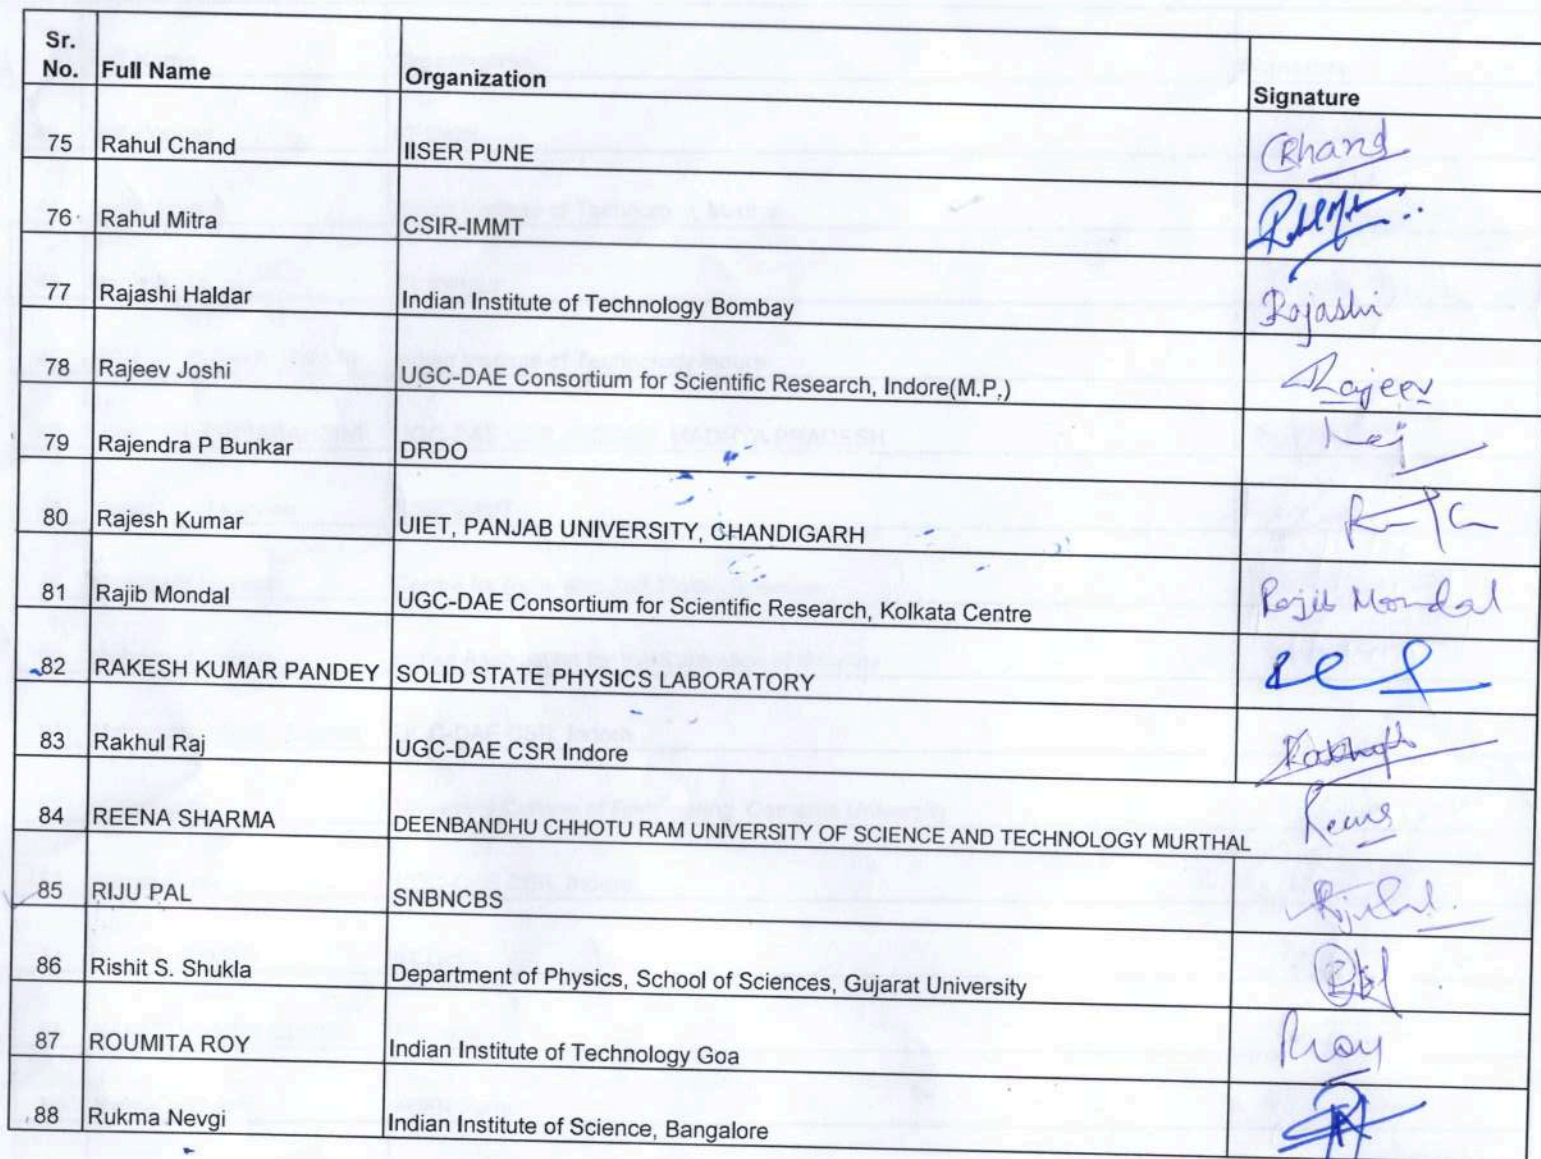 Sr. No. Full Name Organization Signature
75 Rahul Chand IISER PUNE RChand
76 Rahul Mitra CSIR-IMMT
77 Rajashi Haldar Indian Institute of Technology Bombay Rajashi
78 Rajeev Joshi UGC-DAE Consortium for Scientific Research, Indore(M.P.) Rajeev
79 Rajendra P Bunkar DRDO Raj
80 Rajesh Kumar UIET, PANJAB UNIVERSITY, CHANDIGARH
81 Rajib Mondal UGC-DAE Consortium for Scientific Research, Kolkata Centre Rajib Mondal
82 RAKESH KUMAR PANDEY SOLID STATE PHYSICS LABORATORY
83 Rakhul Raj UGC-DAE CSR Indore
84 REENA SHARMA DEENBANDHU CHHOTU RAM UNIVERSITY OF SCIENCE AND TECHNOLOGY MURTHAL Reena
85 RIJU PAL SNBNCBS
86 Rishit S. Shukla Department of Physics, School of Sciences, Gujarat University
87 ROUMITA ROY Indian Institute of Technology Goa RRoy
88 Rukma Nevgi Indian Institute of Science, Bangalore